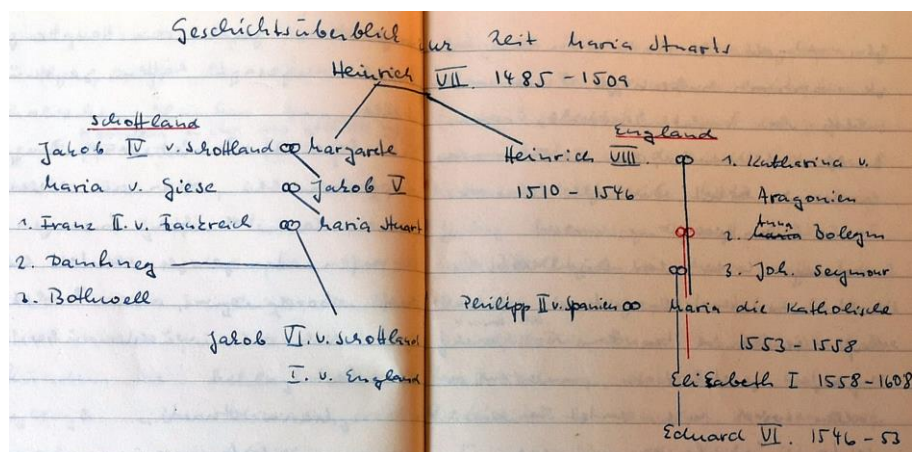 Geschichtsüberblick zur Zeit Maria Stuarts
Heinrich VII. 1485 - 1509
Schottland
Jakob IV v. Schottland ∞ Margarete
Maria v. Giese ∞ Jakob V
1. Franz II. v. Frankreich ∞ Maria Stuart
2. Darnhney
3. Bothwell
Jakob VI. v. Schottland
I. v. England
England
Heinrich VIII. ∞ 1. Katharina v.
1510 - 1546 Aragonien
∞ 2. Anna Boleyn
∞ 3. Joh. Seymour
Philipp II v. Spanien ∞ Maria die Katholische
1553 - 1558
Elisabeth I 1558 - 1608
Eduard VI. 1546 - 53